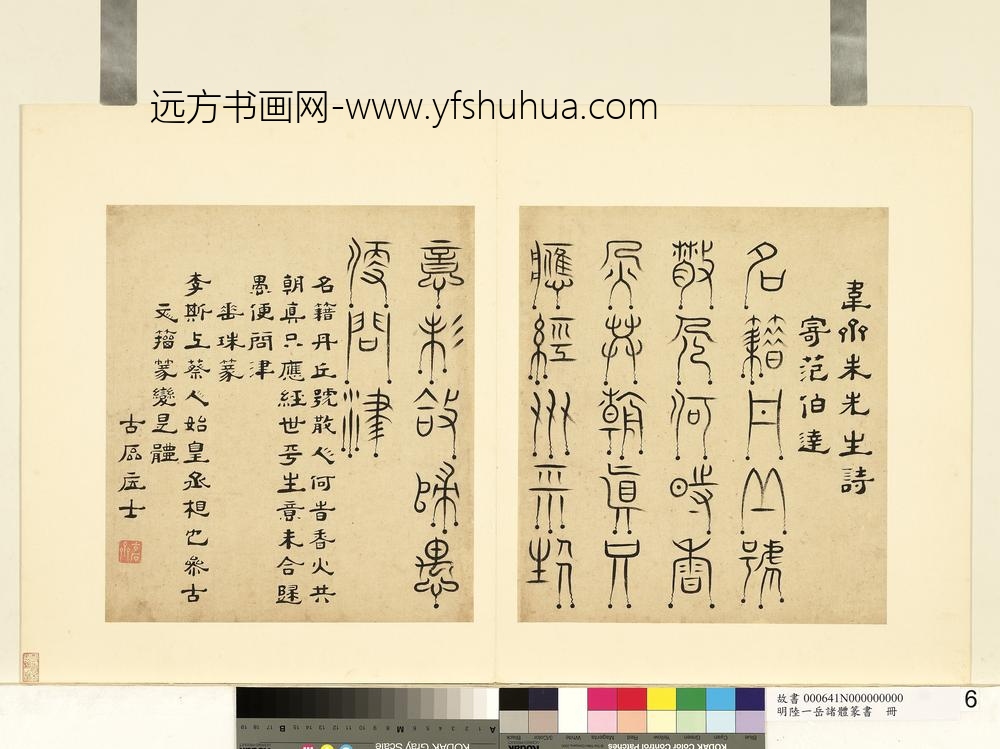 远方书画网-www.yfshuhua.com
韋齋朱先生詩
寄范伯達
名籍丹丘號
散人何時香
火共朝真只
應經世平生
意未合歸愚
便問津
名籍丹丘號散人何旹香火共
朝真只應經世平生意未合歸
愚便問津
垂珠篆
李斯上蔡人始皇丞相也參古
文籀篆變是體
士
故書 000641N000000000
明陸一岳諸體篆書 冊
6
KODAK Gray Scale
KODAK Color Control Patches
Blue Cyan Green Yellow Red Magenta White 3/Color Black